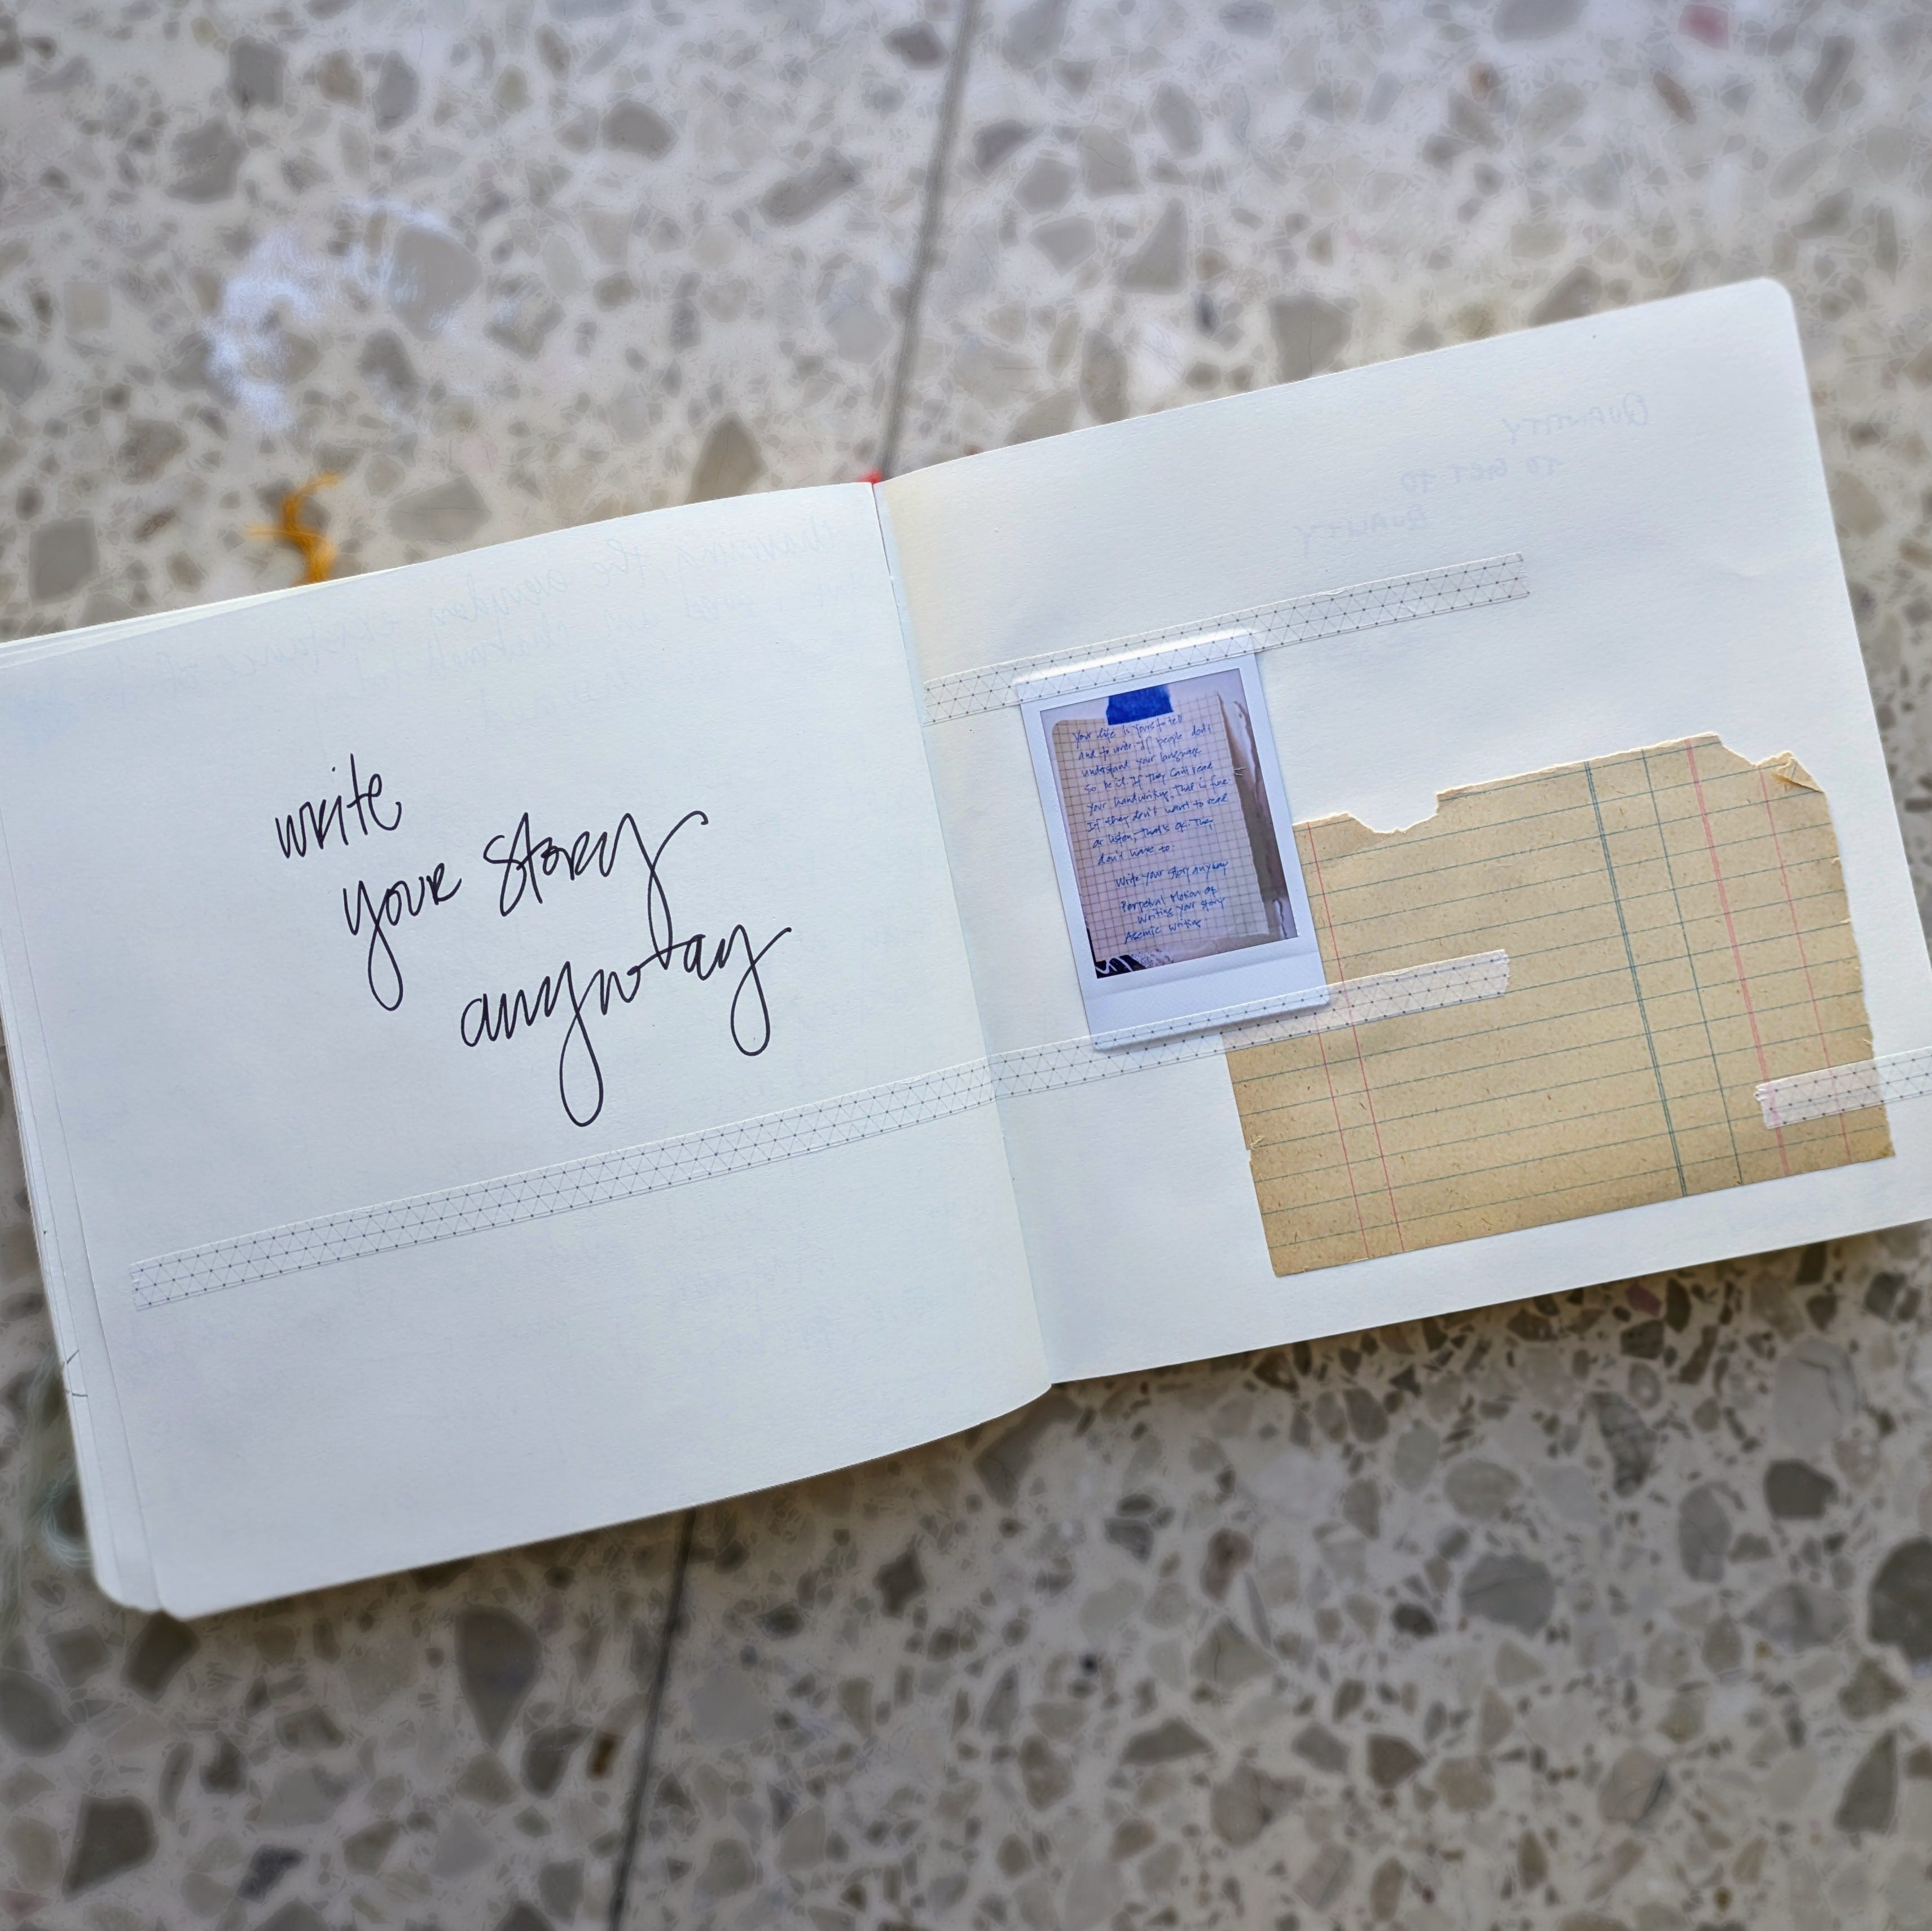 write
your story
anyway
Your life is yours to tell
and to write. If people don't
understand your language
so be it. If they can't read
your handwriting, that is fine
If they don't want to read
or listen, that's ok. They
don't have to.
Write your story anyway
Perpetual Motion of
Writing your story
Asemic writing
Quantity
to get to
Quality